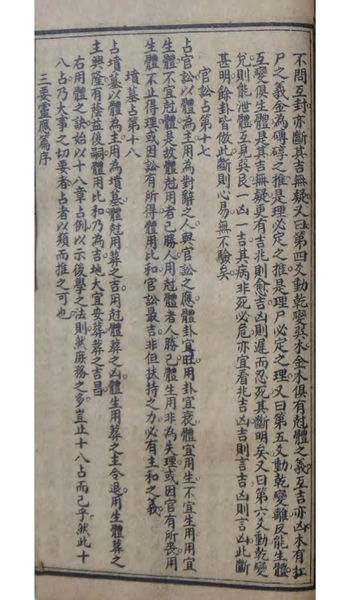 不問互卦亦斷其吉無疑又曰第四爻動乾變巽木金木俱有尅體之義互吉亦凶木有扛
尸之義金為磚磚之推是理必定之推是理尸必定之理又曰第五爻動乾變離反能生體
互變俱生體是其吉無疑更有吉兆則愈吉凶則遲而忍死其斷明矣又曰第六爻動乾變
兌則能泄體互見吳良一凶一吉其病非死必危亦宜看兆吉凶吉則言吉凶則言凶此斷
甚明餘卦皆倣此斷則心易無不驗矣
官訟占第十七
占官訟以體為主用為對辭之人與官訟之應體卦宜旺用卦宜衰體宜用生不宜生用用宜
生體不宜尅體是故體尅用者己勝人用尅體者人勝己體生用非為失理或因官有所喪用
生體不止得理或因訟有所得體用比和官訟最吉非但扶持之力必有主和之義
墳墓占第十八
占墳墓以體為主用為墳墓體尅用葬之吉用尅體葬之凶體生用葬之主令退用生體葬之
主興隆有蔭益後嗣體用比和乃為吉地大宜安葬葬之吉昌
右用體之訣始以十八章占例以示後學之法則然庶務之多豈止十八占而已乎然此十
八占乃大事之切要者占者以類而推之可也
三要靈應篇序